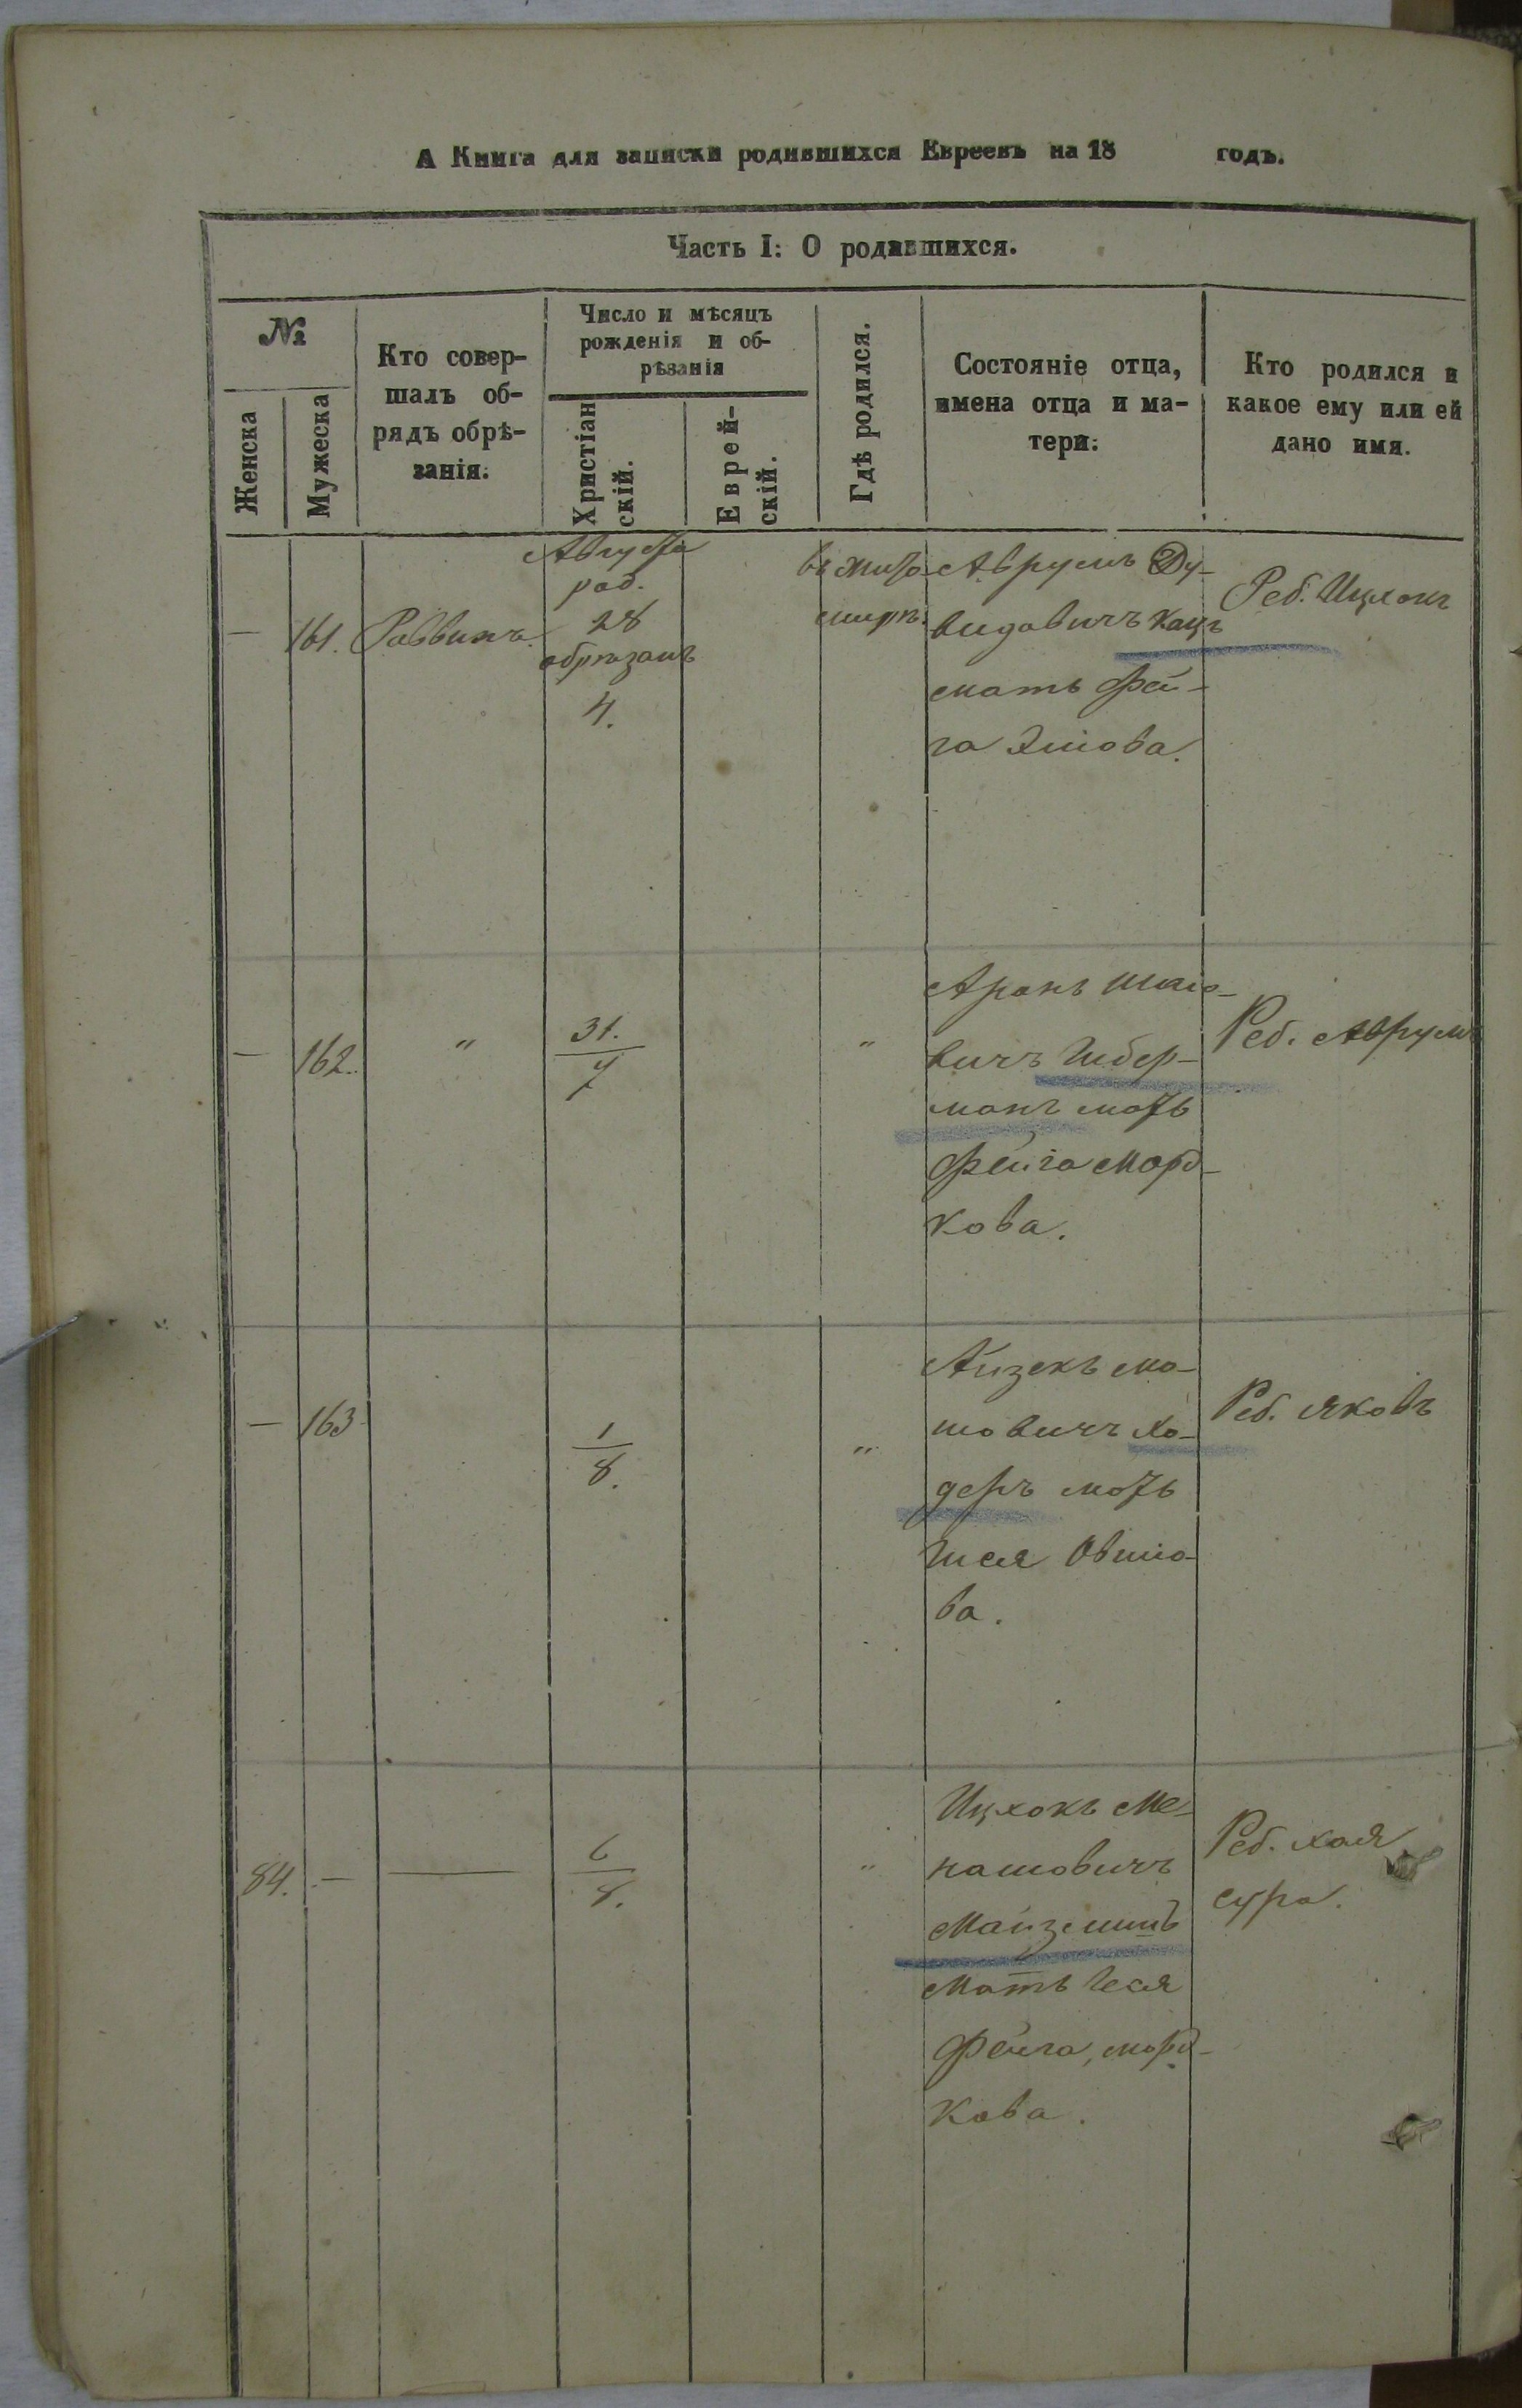 А Книга для записки родившихся Евреевъ на 18 годъ.
Часть I: О родившихся.
№
Женска
Мужеска
Кто совер-
шалъ об-
рядъ обрѣ-
занія.
Число и мѣсяцъ
рожденія и об-
рѣзанія
Христіан
скій.
Еврей-
скій.
Гдѣ родился.
Состояніе отца,
имена отца и ма-
тери.
Кто родился и
какое ему или ей
дано имя.
—
161.
Раввинъ
Августа
род.
28
обрѣзанъ
4.
въ Жито
мирѣ.
Аврумъ Ду-
видовичъ Кацъ
мать Фей-
га
Реб. Ицхокъ
—
162.
"
31.
7
"
Аронъ Шаіо-
вичъ Гибер-
манъ мать
ФейгаМорд-
кова.
Реб. Аврумъ
—
163
1
8.
"
Айзекъ Мо-
шовичъ Хо-
деръ мать
Овшіо-
ва.
Реб. Яковъ
84.
—
—
6
8.
"
Ицхокъ Ме-
нашовичъ
мать
Фейга, Морд-
кова.
Реб. Хая
Сура.